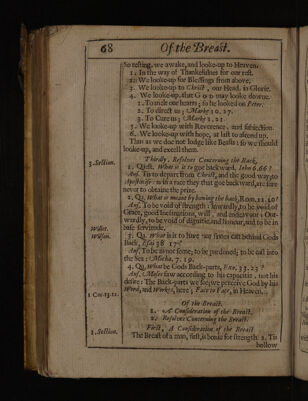 68 Of the Breast.
So resting, we awake, and looke-up to Heaven.
1. In the way of Thankefulnes for our rest.
2. We looke-up for Blessings from above.
3. We looke-up to Christ, our Head, in Glorie.
4. We looke-up, that GOD may looke downe.
1. To melt our hearts; so he looked on Peter.
2. To direct us; Marke 10. 27.
3. To Cure us; Marke
5. We looke-up with Reverence, and subjection.
6. We looke-up with hope, at last to ascend up.
Thus as we doe not lodge like Beasts: so we should
looke-up, and excell them.
3. Section.
Thirdly, Resolves Concerning the Back,
1. Quest. What is it to goe backward, John 6.66?
Ans. Tis to depart from Christ, and the good way, to
Apostasie: in such a race they that goe backward, are sure
never to obtaine the prize.
2. Qu. What is meant by bowing the back, Rom. 11. 10?
Ans. To be void of strength: Inwardly, to be void of
Grace, good Inclinations, will, and endeavour: Out-
wardly, to be void of dignitie, and honour, and to be in
base servitude.
Willet.
Wilson.
3. Qu. What is it to have our sinnes cast behind Gods
Back, Esai 38 17?
Ans. To be as not seene; to be pardoned; to be cast into
the Sea: Micha. 7. 19.
4. Qu. What be Gods Back-parts, Exo. 33. 23?
Ans. Moses saw according to his capacitie, not his
desire: The Back-parts we see; we perceive God by his
Word, and Workes, here; Face to Face, in Heaven.
1 Cor. 13. 12.
Of the Breast.
1. A Consideration of the Breast.
2. Resolves Concerning the Breast.
1. Section.
First, A Consideration of the Breast
The Breast of a man, first, is bonie for strength: 2. Tis
hollow